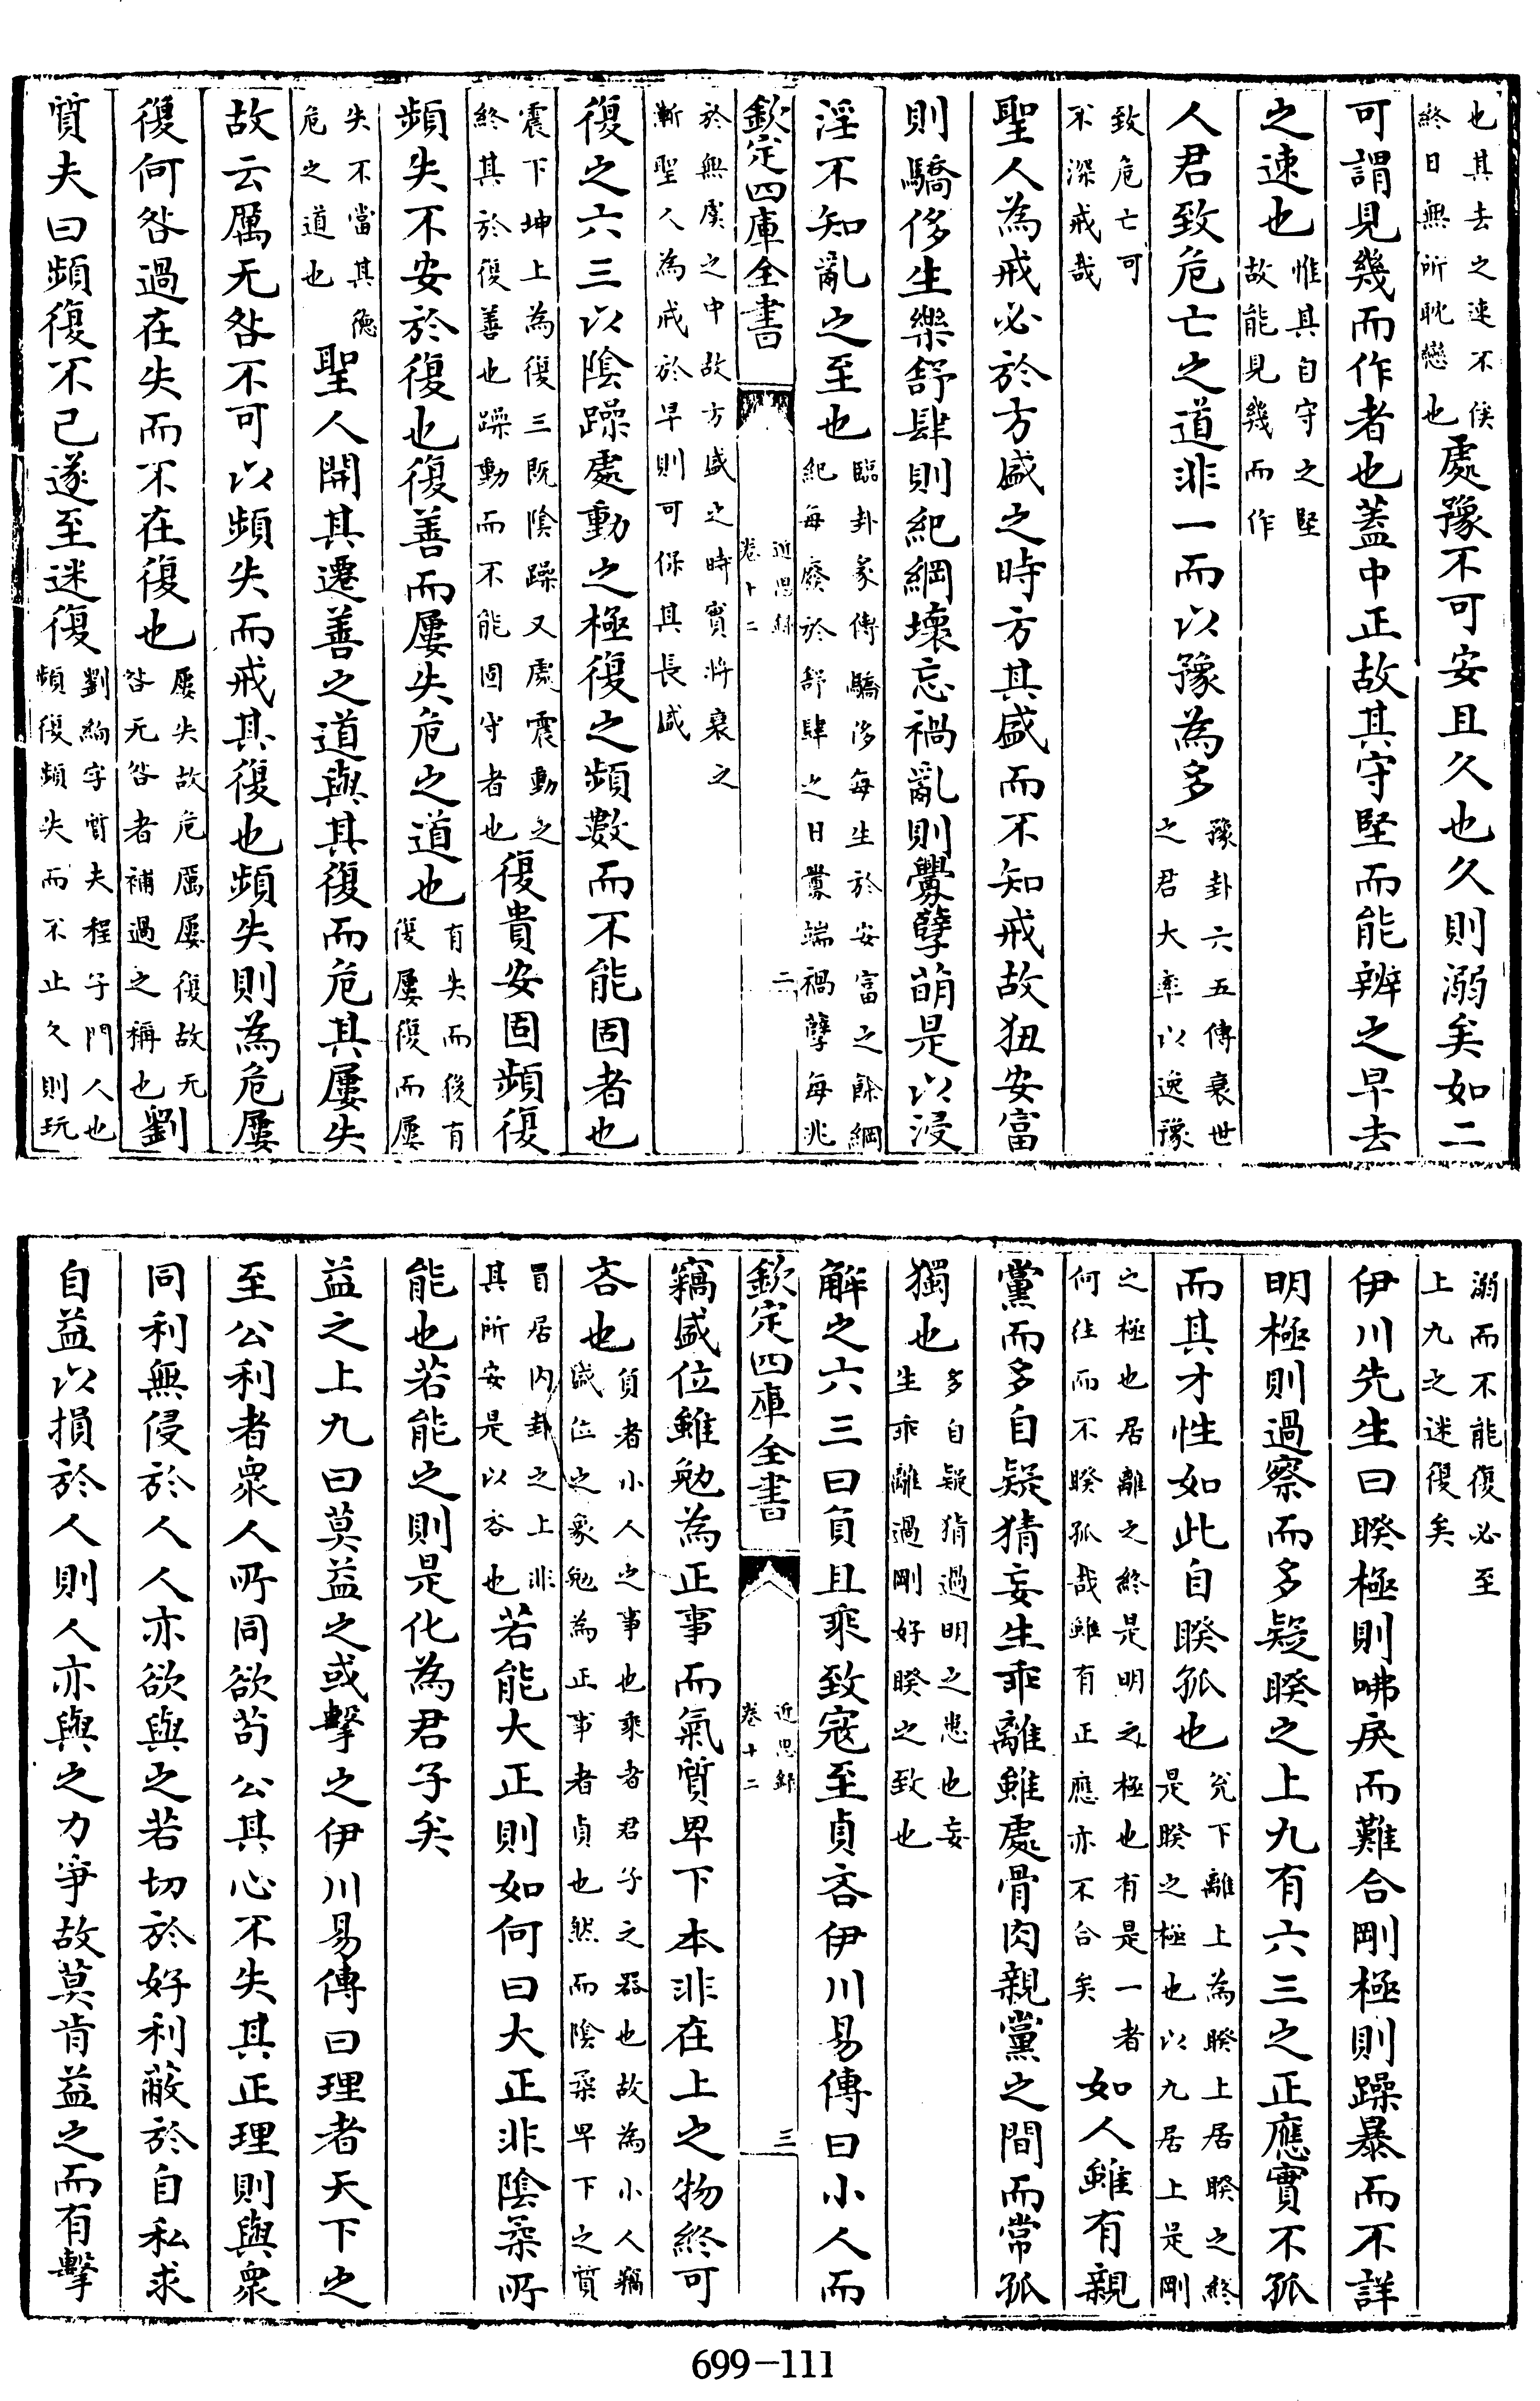 也其去之速不俟
終日無所耽戀也處豫不可安且久也久則溺矣如二
可謂見幾而作者也蓋中正故其守堅而能辨之早去
之速也惟其自守之堅
故能見幾而作
人君致危亡之道非一而以豫為多豫卦六五傳衰世
之君大率以逸豫
致危亡可
不深戒哉
聖人為戒必於方盛之時方其盛而不知戒故狃安富
則驕侈生樂舒肆則紀綱壞忘禍亂則釁孽萌是以浸
淫不知亂之至也臨卦彖傳驕侈每生於安富之餘綱
紀每廢於舒肆之日釁端禍孽每兆
欽定四庫全書
近思錄
卷十二
二
於無虞之中故方盛之時實將衰之
漸聖人為戒於早則可保其長盛
復之六三以陰躁處動之極復之頻數而不能固者也
震下坤上為復三既陰躁又處震動之
終其於復善也躁動而不能固守者也復貴安固頻復
頻失不安於復也復善而屢失危之道也有失而後有
復屢復而屢
失不當其德
危之道也聖人開其遷善之道與其復而危其屢失
故云厲无咎不可以頻失而戒其復也頻失則為危屢
復何咎過在失而不在復也屢失故危厲屢復故无
咎无咎者補過之稱也劉
質夫曰頻復不已遂至迷復劉絢字質夫程子門人也
頻復頻失而不止久則玩
溺而不能復必至
上九之迷復矣
伊川先生曰睽極則咈戾而難合剛極則躁暴而不詳
明極則過察而多疑睽之上九有六三之正應實不孤
而其才性如此自睽孤也兌下離上為睽上居睽之終
是睽之極也以九居上是剛
之極也居離之終是明之極也有是一者
何往而不睽孤哉雖有正應亦不合矣如人雖有親
黨而多自疑猜妄生乖離雖處骨肉親黨之間而常孤
獨也多自疑猜過明之患也妄
生乖離過剛好睽之致也
解之六三曰負且乘致寇至貞吝伊川易傳曰小人而
欽定四庫全書
近思錄
卷十二
三
竊盛位雖勉為正事而氣質卑下本非在上之物終可
吝也負者小人之事也乘者君子之器也故為小人竊
盛位之象勉為正事者貞也然而陰柔卑下之質
冒居內卦之上非
其所安是以吝也若能大正則如何曰大正非陰柔所
能也若能之則是化為君子矣
益之上九曰莫益之或擊之伊川易傳曰理者天下之
至公利者衆人所同欲苟公其心不失其正理則與衆
同利無侵於人人亦欲與之若切於好利蔽於自私求
自益以損於人則人亦與之力爭故莫肯益之而有擊
699-111